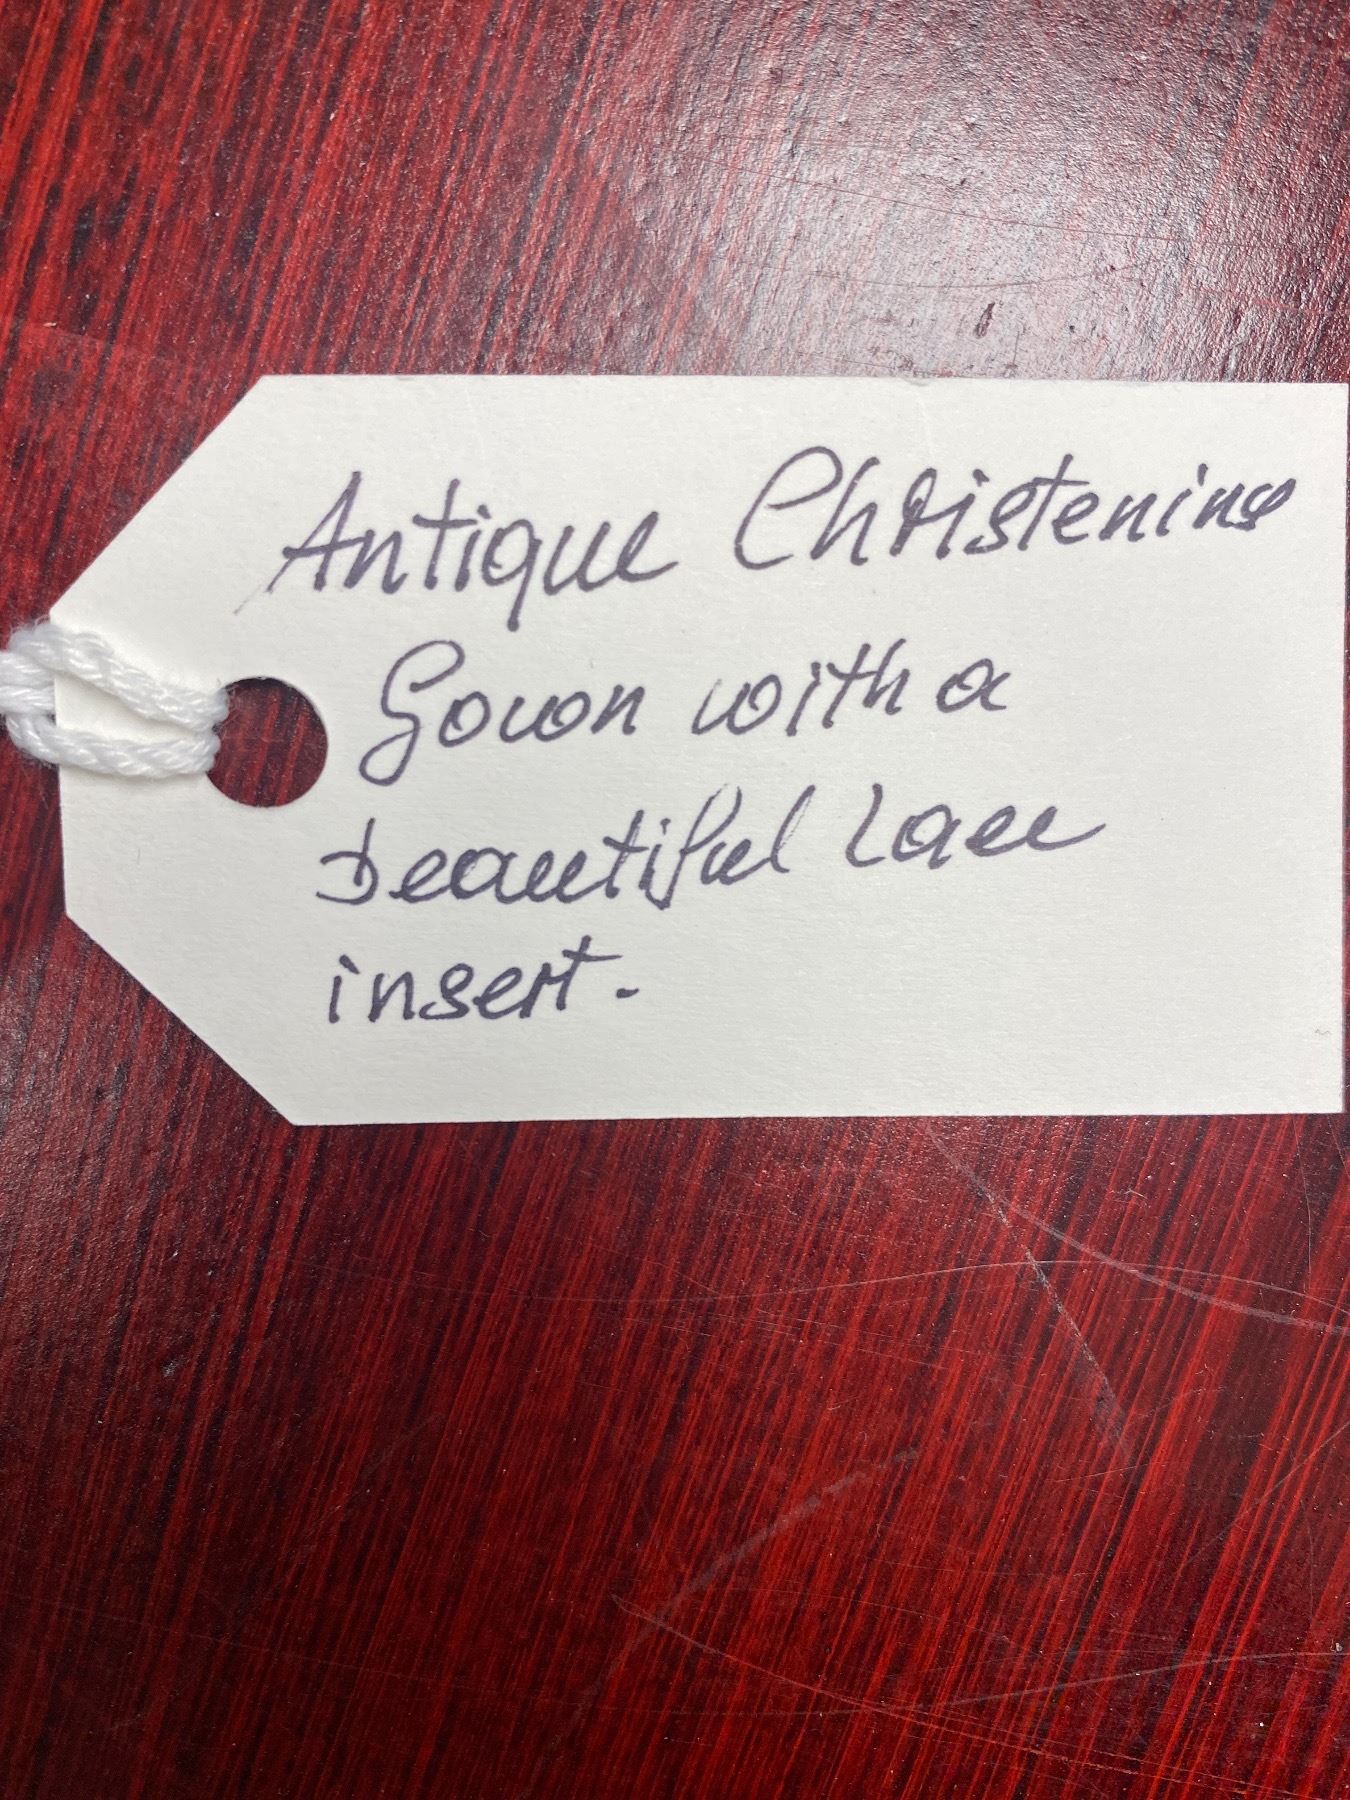 Antique Christening
Gown with a
beautiful Lace
insert.